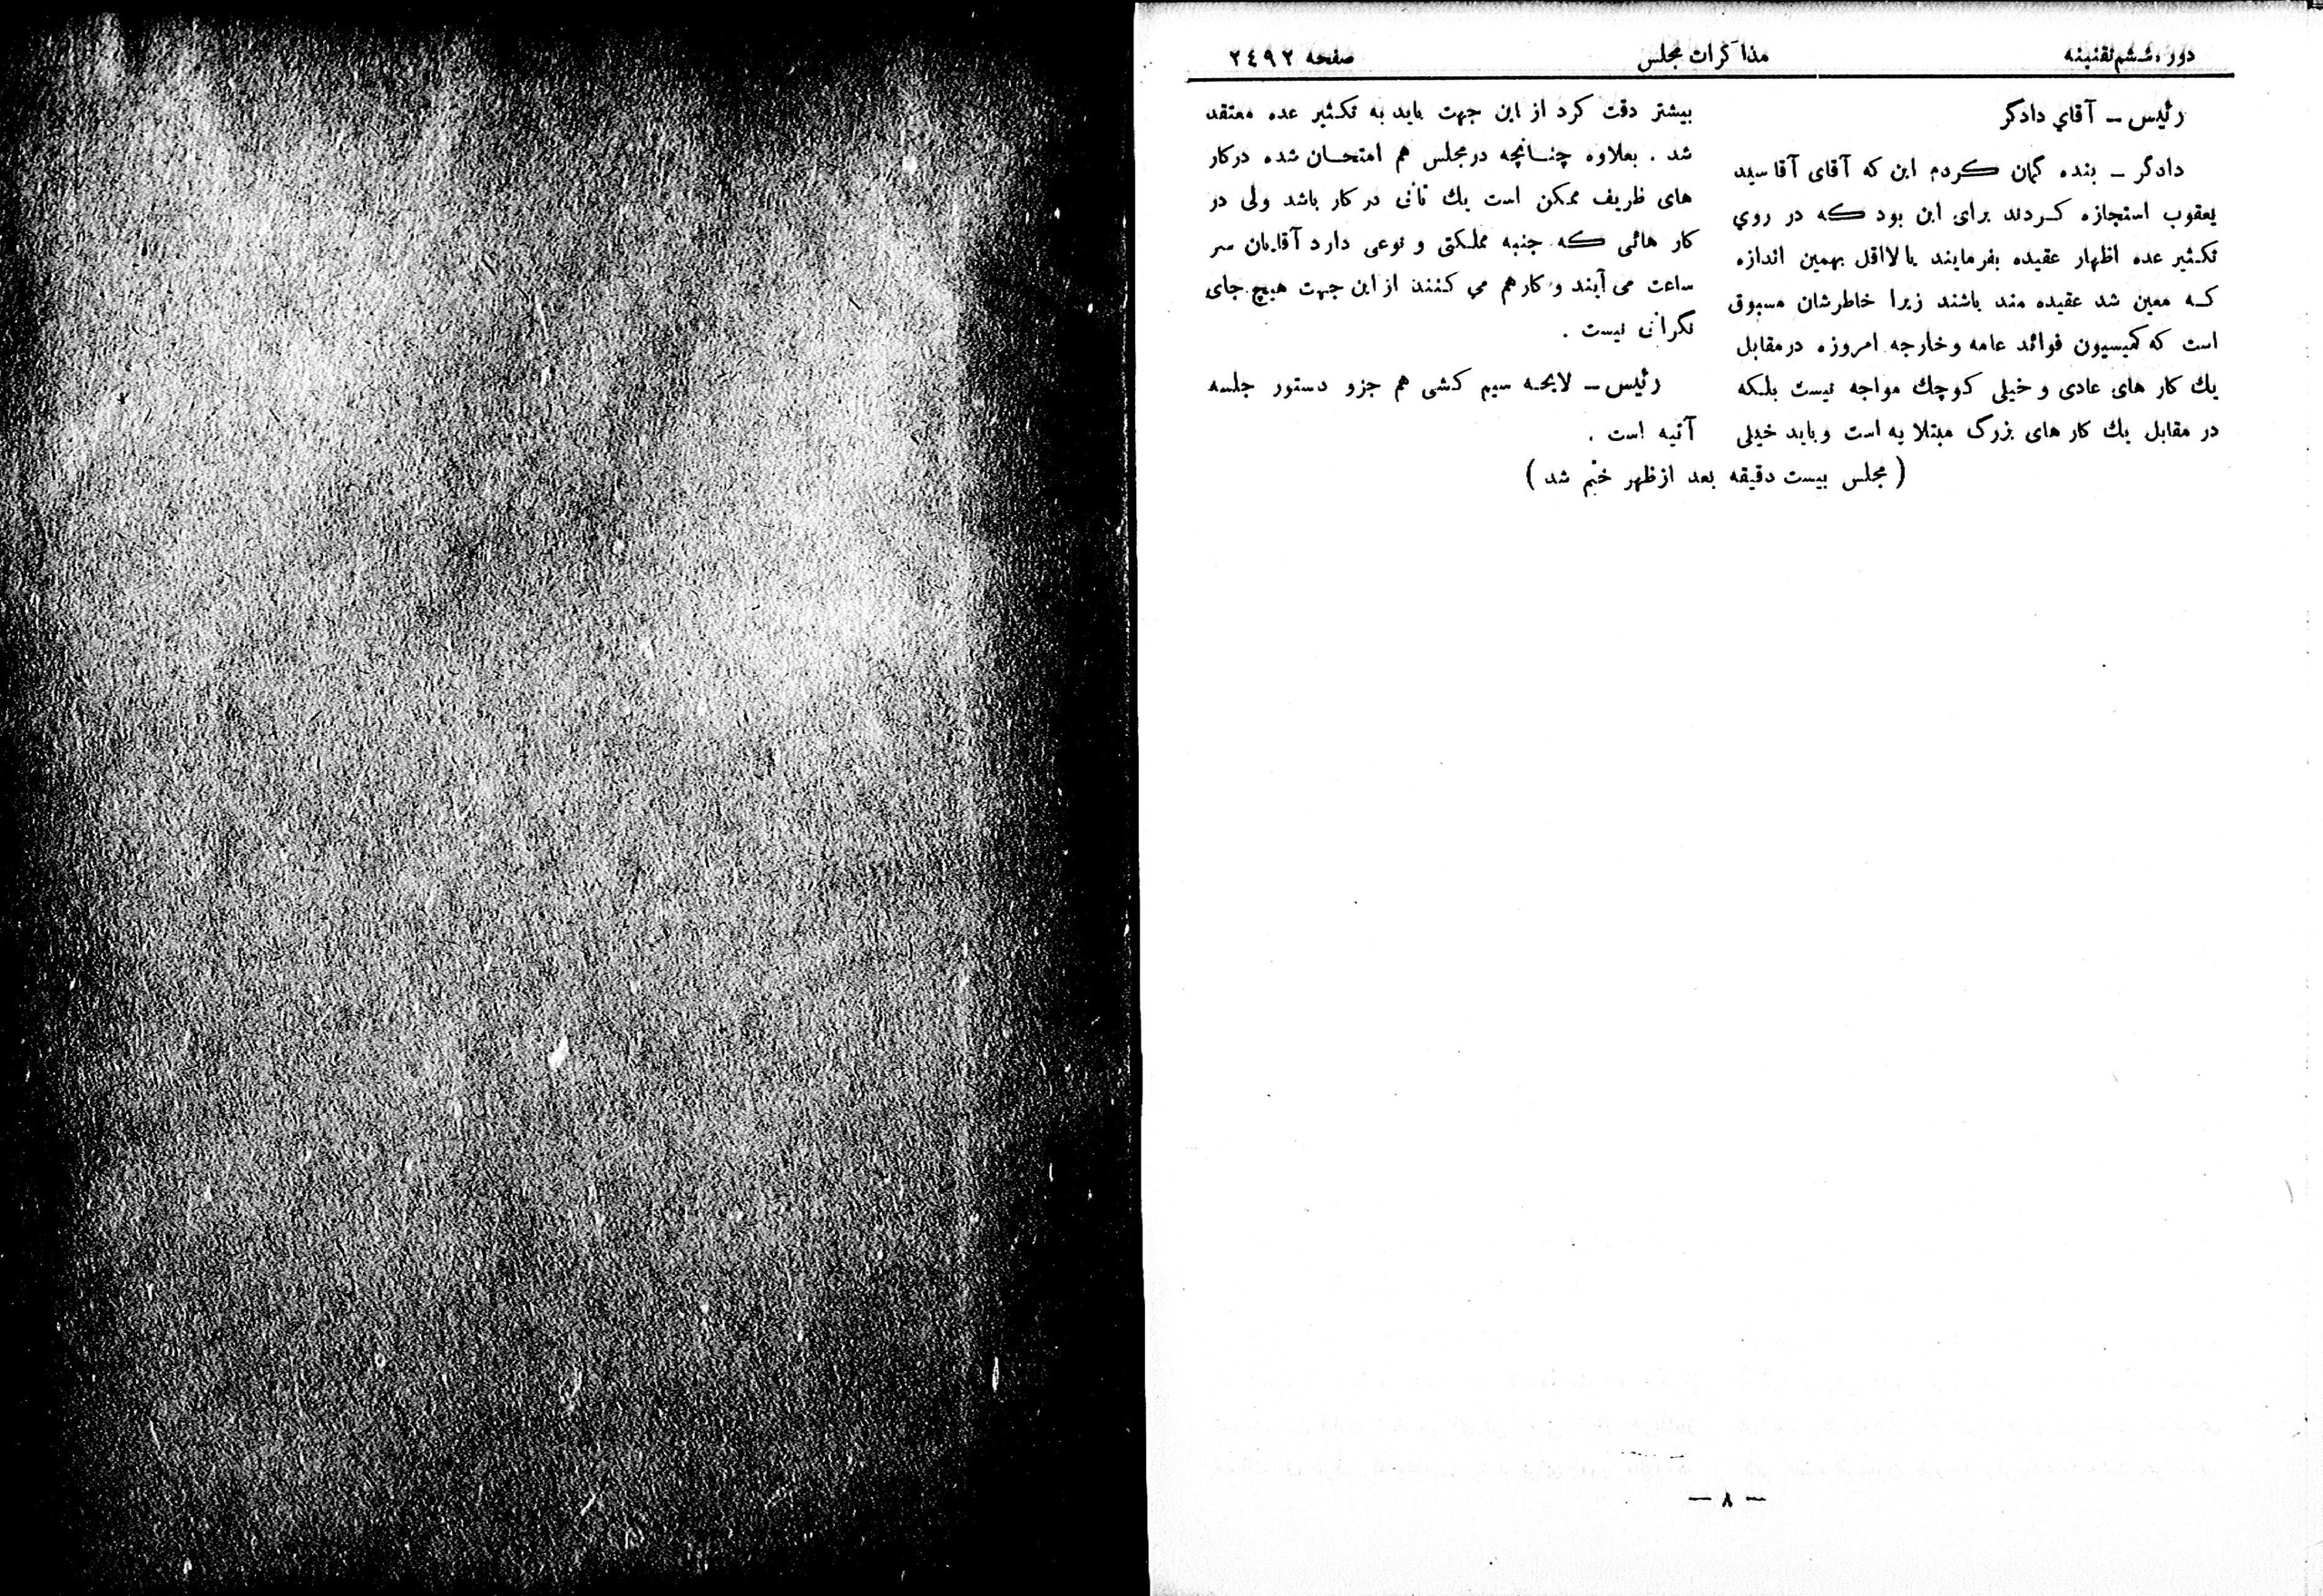 دوره ششم تقنینه
مذاکرات مجلس
صفحه ۲٤۹۲
رئیس ــ آقای دادگر
دادگر ــ بنده گمان کردم این که آقای آقا سید
یعقوب استجازه کردند برای این بود که در روی
تکثیر عده اظهار عقیده بفرمایند یا لااقل بهمین اندازه
که معین شد عقیده مند باشند زیرا خاطرشان مسبوق
است که کمیسیون فوائد عامه و خارجه امروزه درمقابل
یك کار های عادی و خیلی کوچك مواجه نیست بلکه
در مقابل یك کار های بزرگ مبتلا به است و باید خیلی
بیشتر دقت کرد از این جهت باید به تکثیر عده معتقد
شد . بعلاوه چنانچه درمجلس هم امتحان شده درکار
های ظریف ممکن است یك تأنی در کار باشد ولی در
کار هائی که جنبه مملکتی و نوعی دارد آقایان سر
ساعت می آیند و کار هم می کنند از این جهت هیچ جای
نگرانی نیست .
رئیس ــ لایحه سیم کشی هم جزو دستور جلسه
آتیه است .
( مجلس بیست دقیقه بعد از ظهر ختم شد )
— ۸ —